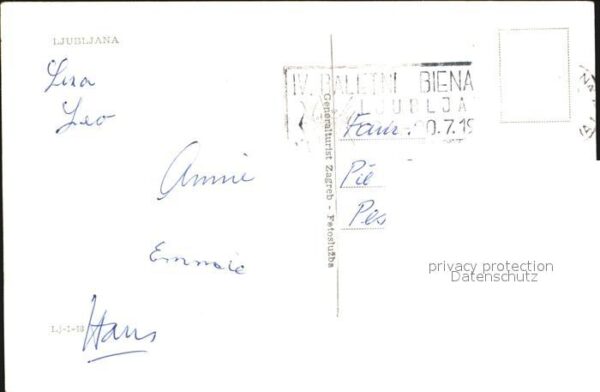 LJUBLJANA
Lisa
Leo
Annie
Emmie
Hans
Lj-1-98
Generalturist Zagreb - Fotoslužba
IV. BALETNI BIENA
LJUBLJA
0.7.19
Fam.
Pié
Pes
privacy protection
Datenschutz